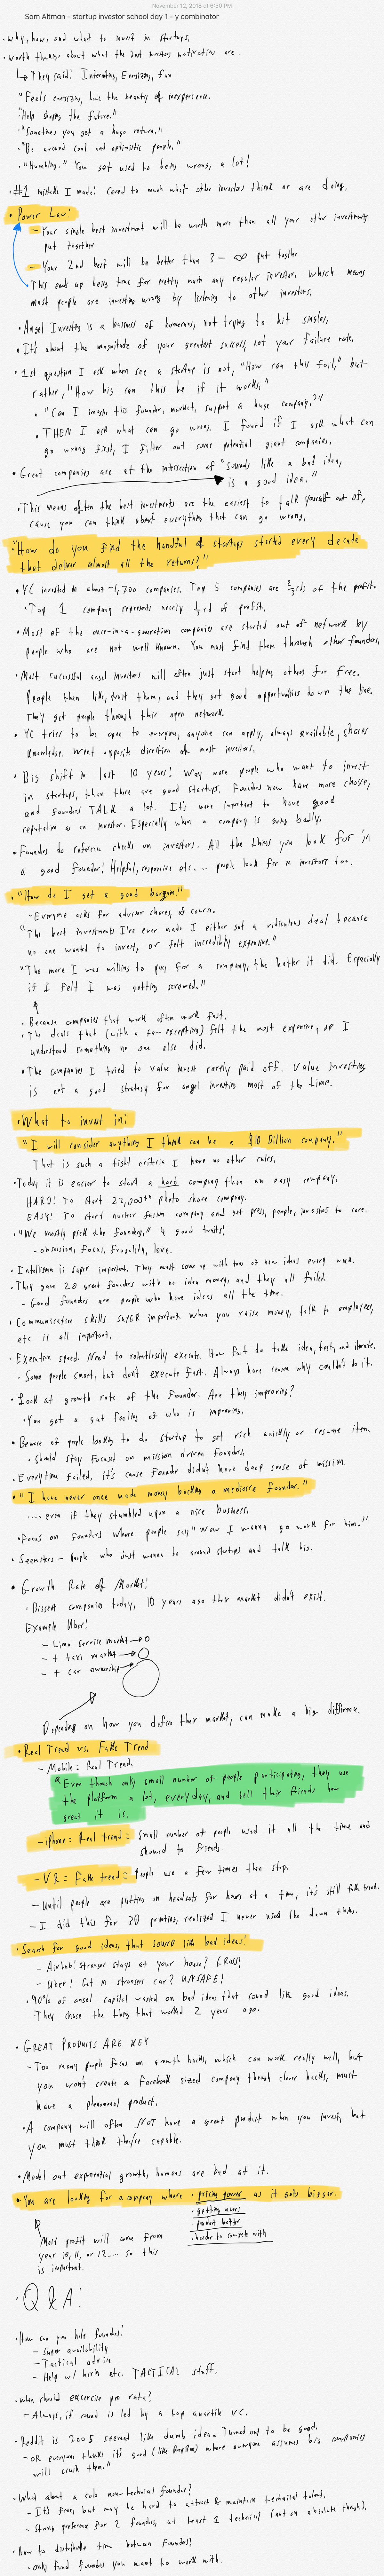 November 12, 2018 at 6:50 PM
Sam Altman - startup investor school day 1 - y combinator
• Why, how, and what to invest in startups.
• Worth thinking about what the best investors motivations are.
↳ They said: Interesting, Energizing, fun
"Feels energizing, have the beauty of inexperience.
"Help shaping the future."
• "Sometimes you get a huge return."
• "Be around cool and optimistic people."
• "Humbling." You get used to being wrong, a lot!
• #1 mistake I made: Cared to much what other investors think or are doing.
• Power Law:
- Your single best investment will be worth more than all your other investments
put together
- Your 2nd best will be better than 3 - ∞ put together
This ends up being true for pretty much any regular investor. Which means
most people are investing wrong by listening to other investors.
• Angel Investing is a business of homeruns, not trying to hit singles.
• It's about the magnitude of your greatest success, not your failure rate.
• 1st question I ask when see a startup is not, "How can this fail," but
rather, "How big can this be if it works."
• "Can I imagine this founder, market, support a huge company?"
• THEN I ask what can go wrong. I found if I ask what can
go wrong first, I filter out some potential giant companies.
• Great companies are at the intersection of "sounds like a bad idea,
is a good idea."
• This means often the best investments are the easiest to talk yourself out of,
cause you can think about everything that can go wrong.
• "How do you find the handful of startups started every decade
that deliver almost all the returns?"
• YC invested in about ~1,700 companies. Top 5 companies are 2/3rds of the profits
• Top 1 company represents nearly 1/3rd of profit.
• Most of the once-in-a-generation companies are started out of network by
people who are not well known. You must find them through other founders.
• Most successful angel investors will often just start helping others for free.
People then like, trust them, and they get good opportunities down the line.
They get people through their open network.
• YC tries to be open to everyone, anyone can apply, always available, shares
knowledge. Went opposite direction of most investors.
• Big shift in last 10 years: Way more people who want to invest
in startups, than there are good startups. Founders now have more choice,
and founders TALK a lot. It's more important to have good
reputation as an investor. Especially when a company is going badly.
• Founders do reference checks on investors. All the things you look for in
a good founder: Helpful, responsive etc... people look for in investors too.
• "How do I get a good bargain?"
- Everyone asks for advisor shares, of course.
"The best investments I've ever made I either got a ridiculous deal because
no one wanted to invest, or felt incredibly expensive."
"The more I was willing to pay for a company, the better it did. Especially
if I felt I was getting screwed."
• Because companies that work often work fast.
• The deals that (with a few exceptions) felt the most expensive, or I
understood something no one else did.
• The companies I tried to value invest rarely paid off. Value investing
is not a good strategy for angel investing most of the time.
• What to invest in:
"I will consider anything I think can be a $10 Billion company."
That is such a tight criteria I have no other rules.
• Today it is easier to start a hard company than an easy company.
HARD: To start 22,000th photo share company.
EASY: To start nuclear fusion company and get press, people, investors to care.
• "We mostly pick the founders," 4 good traits:
- obsession, focus, frugality, love.
• Intelligence is super important. They must come up with tons of new ideas every week.
• They gave 20 great founders with no idea money, and they all failed.
- Good founders are people who have ideas all the time.
• Communication skills SUPER important. When you raise money, talk to employees,
etc is all important.
• Execution speed. Need to relentlessly execute. How fast do take idea, test, and iterate.
• Some people smart, but don't execute fast. Always have reason why couldn't do it.
• Look at growth rate of the founder. Are they improving?
• You get a gut feeling of who is improving.
• Beware of people looking to do startup to get rich quickly or resume item.
• Should stay focused on mission driven founders.
• Everytime failed, it's cause founder didn't have deep sense of mission.
• "I have never once made money backing a mediocre founder."
.... even if they stumbled upon a nice business.
• Focus on founders where people say "Wow I wanna go work for him."
• Seemsters - people who just wanna be around startups and talk big.
• Growth Rate of Market:
• Biggest companies today, 10 years ago their market didn't exist.
Example Uber:
- Limo service market →
- + taxi market →
- + car ownership →
Depending on how you define their market, can make a big difference.
• Real Trend vs. Fake Trend
- Mobile = Real Trend.
"Even though only small number of people participating, they use
the platform a lot, everyday, and tell their friends how
great it is.
- iphone = Real trend = Small number of people used it all the time and
showed to friends.
- VR = Fake trend = People use a few times then stop.
- Until people are putting on headsets for hours at a time, it's still fake trend.
- I did this for 3D printing, realized I never used the damn thing.
• Search for good ideas, that sound like bad ideas!
- Airbnb: Stranger stays at your house? GROSS!
- Uber: Get in strangers car? UNSAFE!
• 90% of angel capital wasted on bad idea that sound like good ideas.
They chase the thing that worked 2 years ago.
• GREAT PRODUCTS ARE KEY
- Too many people focus on growth hacks, which can work really well, but
you won't create a Facebook sized company through clever hacks, must
have a phenomenal product.
• A company will often NOT have a great product when you invest, but
you must think they're capable.
• Model out exponential growth, humans are bad at it.
• You are looking for a company where • pricing power as it gets bigger.
• getting users
• product better
• harder to compete with
Most profit will come from
year 10, 11, or 12.... so this
is important.
• Q & A:
• How can you help founders:
- Super availability
- Tactical advice
- Help w/ hiring etc. TACTICAL stuff.
• When should excercise pro rata?
- Always, if round is led by a top quartile VC.
• Reddit in 2005 seemed like dumb idea. Turned out to be good.
- OR everyone thinks it's good (like Dropbox) where everyone assumes big companies
will crush them."
• What about a solo non-technical founder?
- It's fine, but may be hard to attract & maintain technical talent.
- Strong preference for 2 founders, at least 1 technical (not an absolute though).
• How to distribute time between founders?
• only fund founders you want to work with.